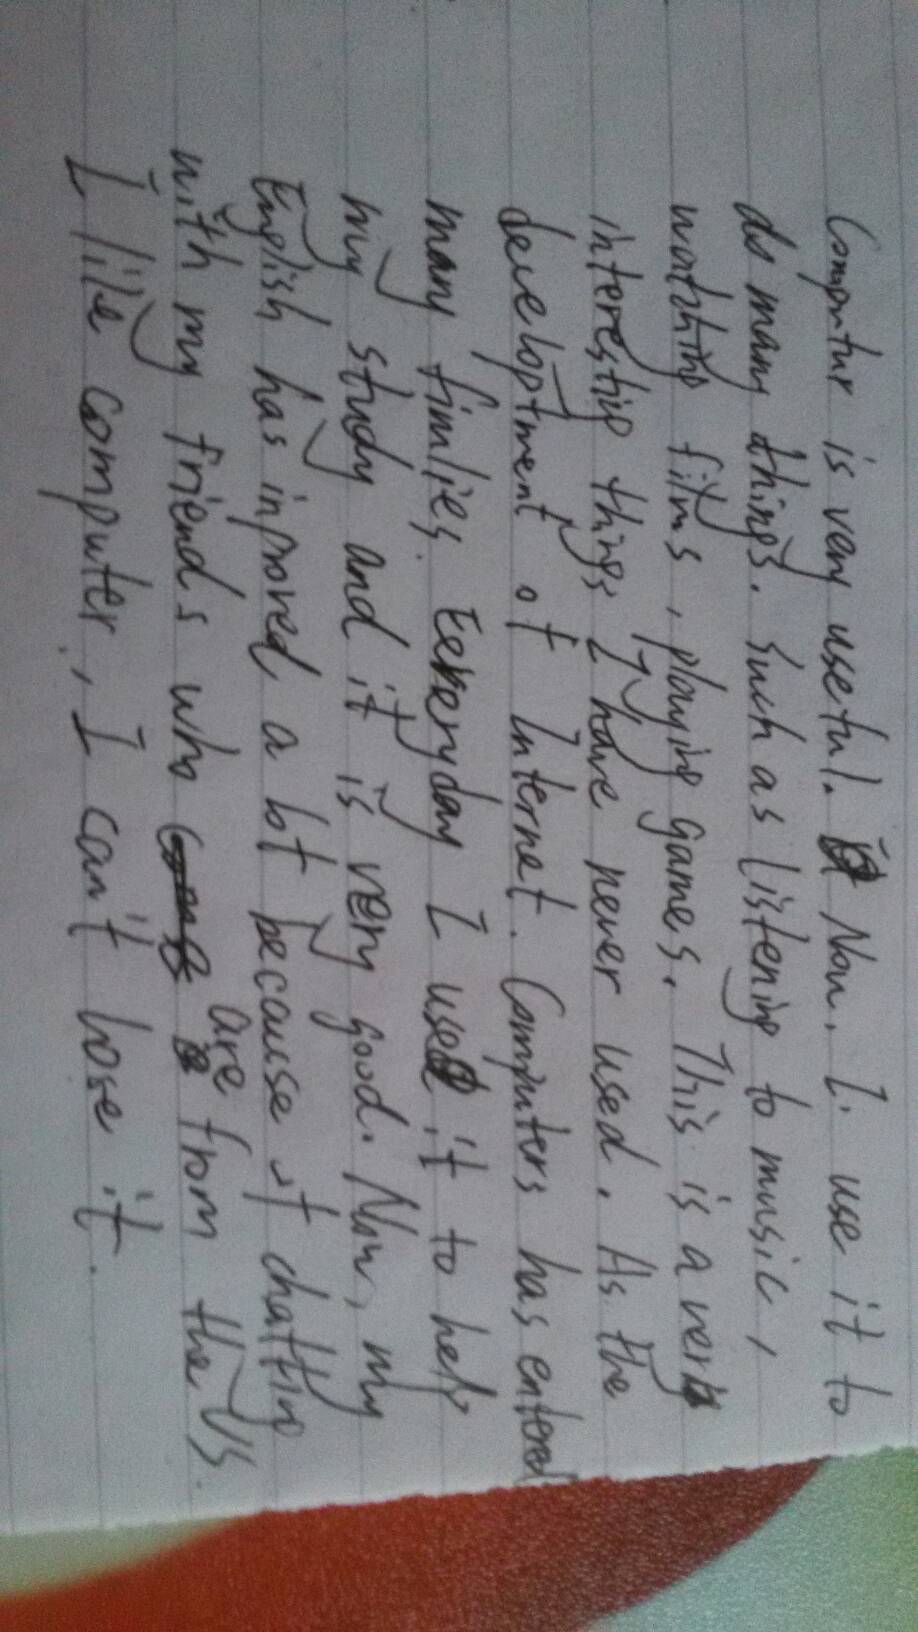 Computer is very useful. Now, I. use it to
do many things. Such as listening to music,
watching films, playing games. This is a very
interesting things I have never used. As the
developtment of Internet. Computers has entered
many fimlies. Eeveryday I use it to help
my study and it is very good. Now, my
English has inproved a lot because of chatting
with my friends who are from the US.
I like computer, I can't lose it.